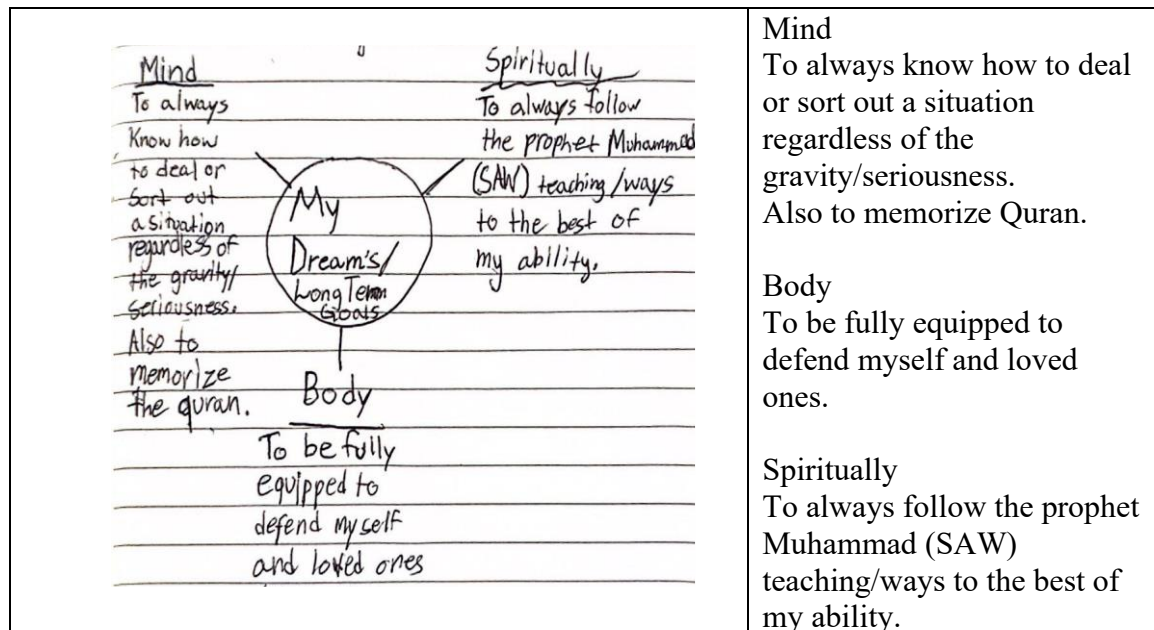 Mind
To always
Know how
to deal or
Sort out
a situation
regardless of
the gravity/
seriousness.
Also to
memorize
the quran.
Spiritually
To always follow
the prophet Muhammad
(SAW) teaching/ways
to the best of
my ability.
My
Dream's/
Long Term
Goals
Body
To be fully
equipped to
defend myself
and loved ones
Mind
To always know how to deal
or sort out a situation
regardless of the
gravity/seriousness.
Also to memorize Quran.
Body
To be fully equipped to
defend myself and loved
ones.
Spiritually
To always follow the prophet
Muhammad (SAW)
teaching/ways to the best of
my ability.